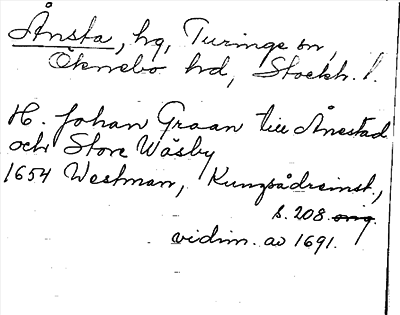 Ånsta, hg, Turinge sn,
Öknebo hd, Stockh. l.
H. Johan Graan till Ånestad
och Store Wäsby
1654 Westman, Kungsådreinst.,
s. 208. orig.
vidim. av 1691.